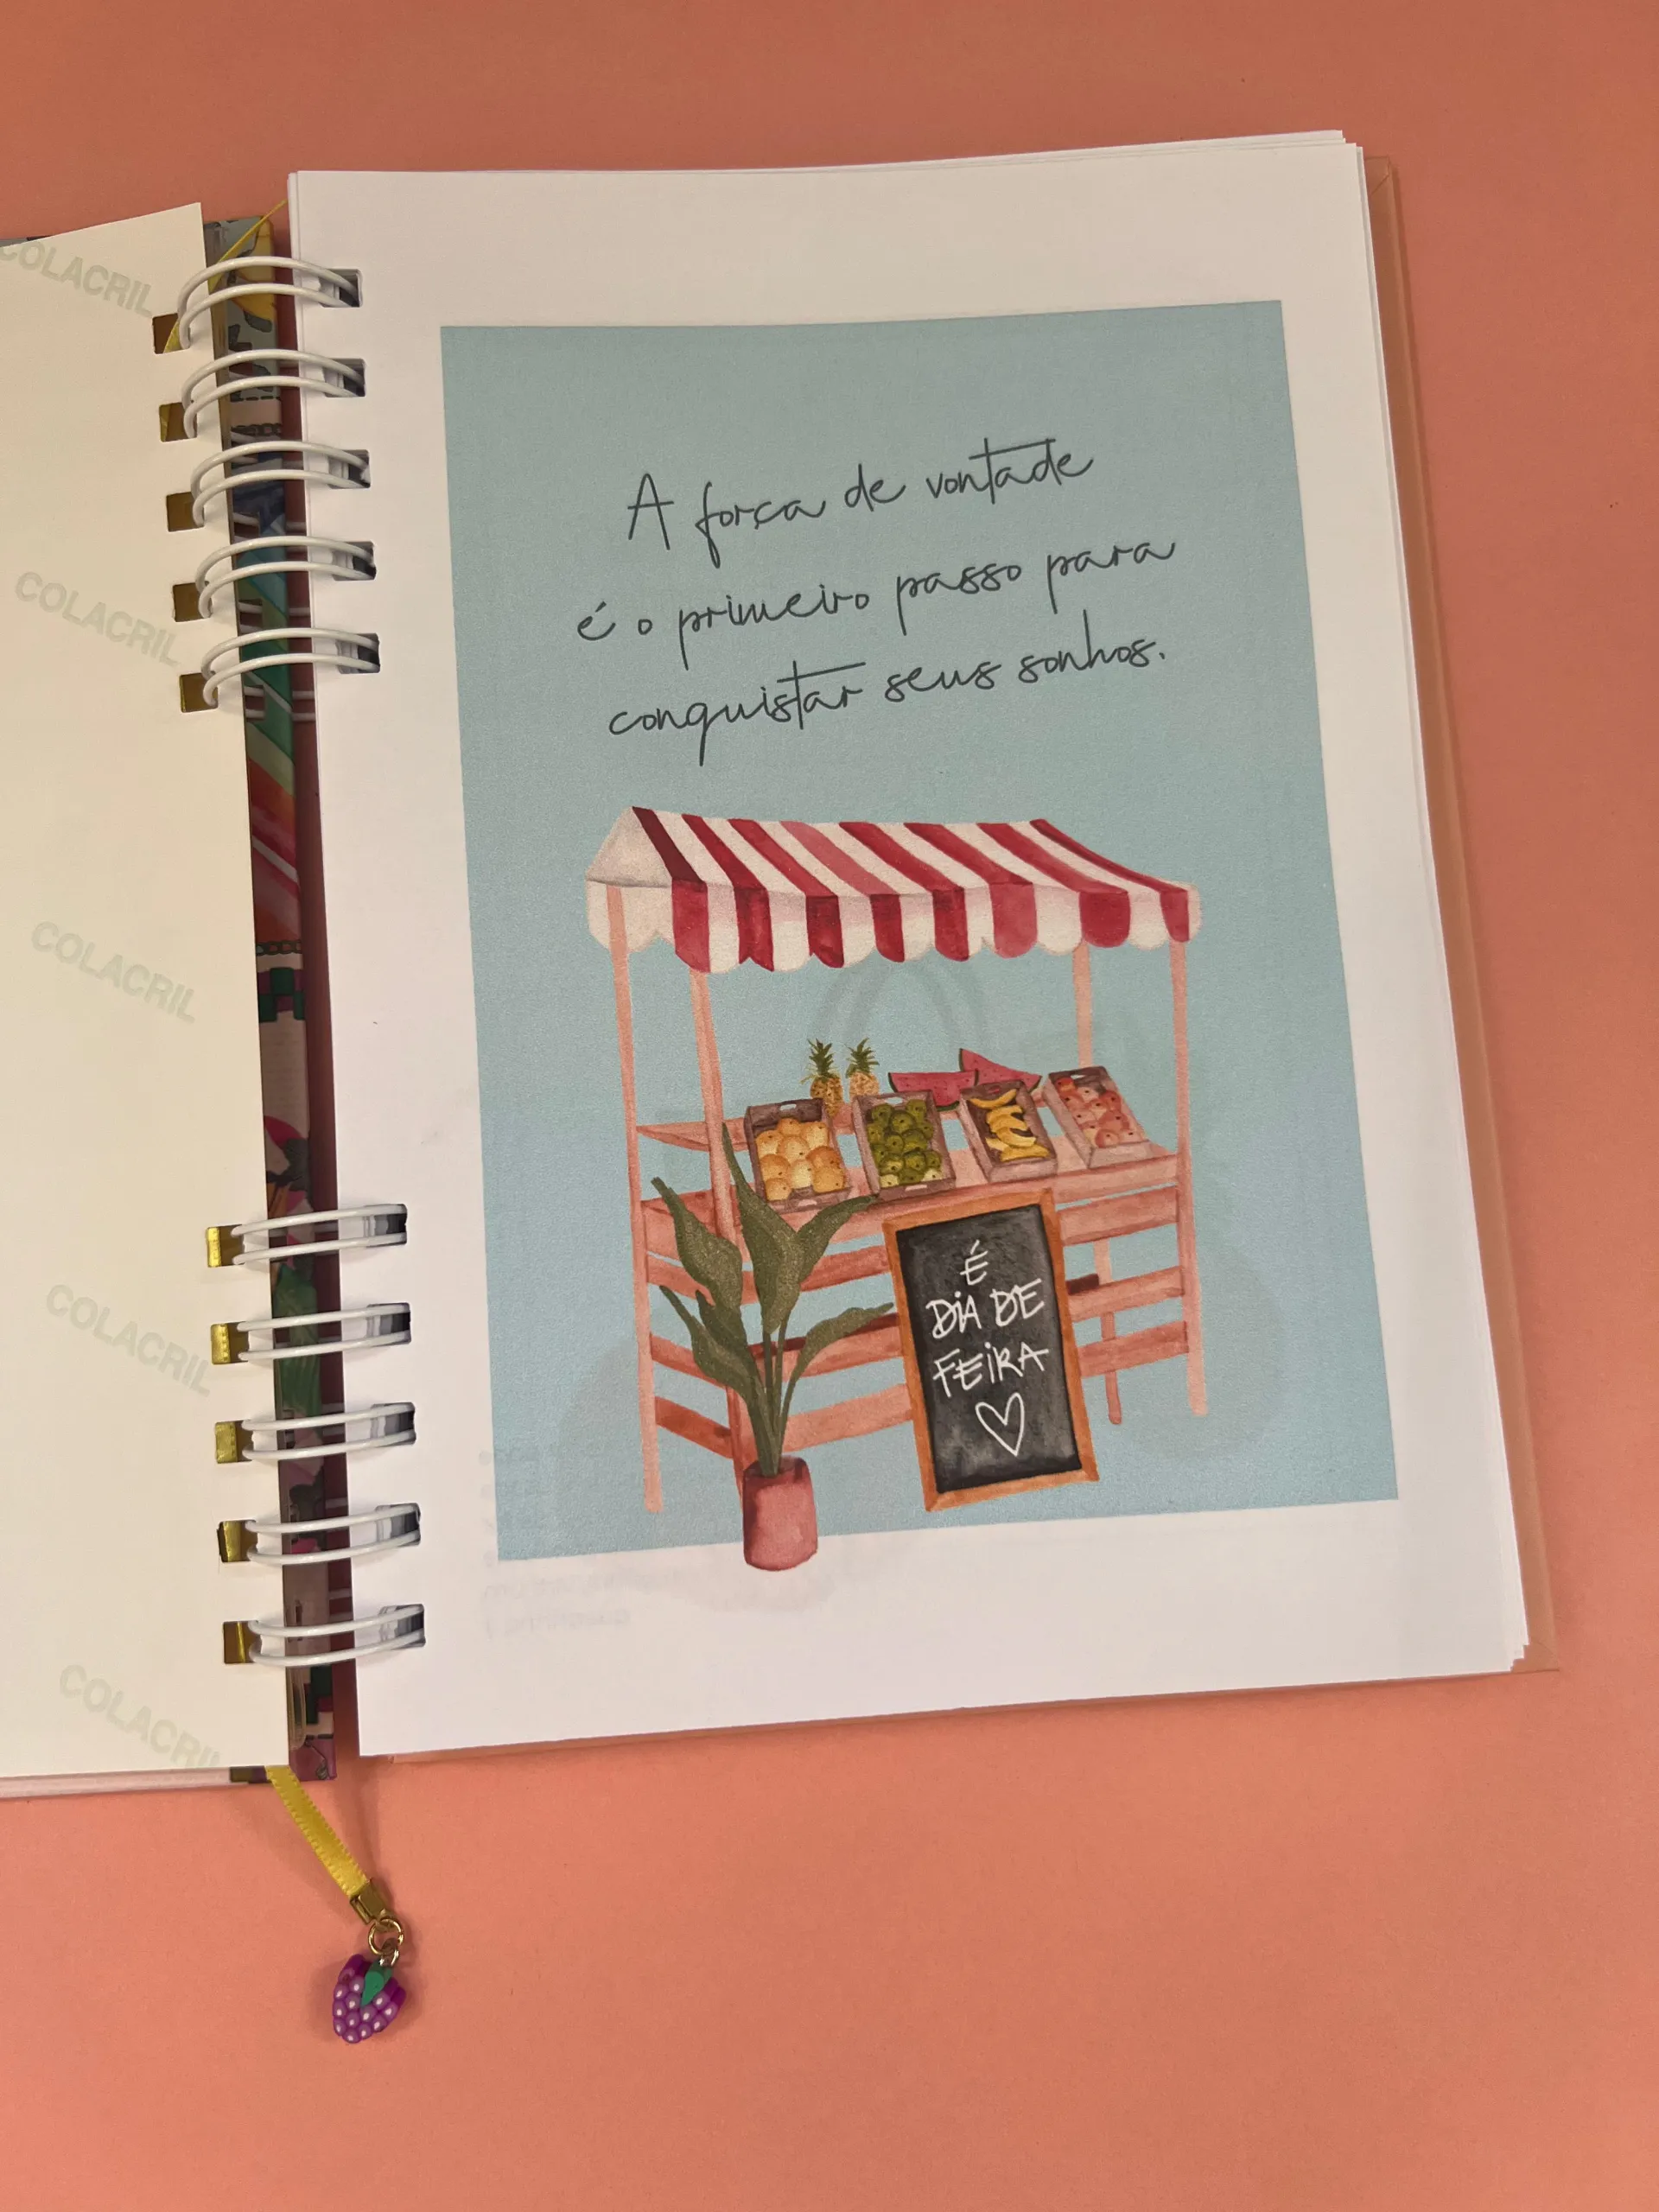 COLACRIL
COLACRIL
COLACRIL
COLACRIL
COLACRIL
A força de vontade
é o primeiro passo para
conquistar seus sonhos.
É
DIA DE
FEIRA